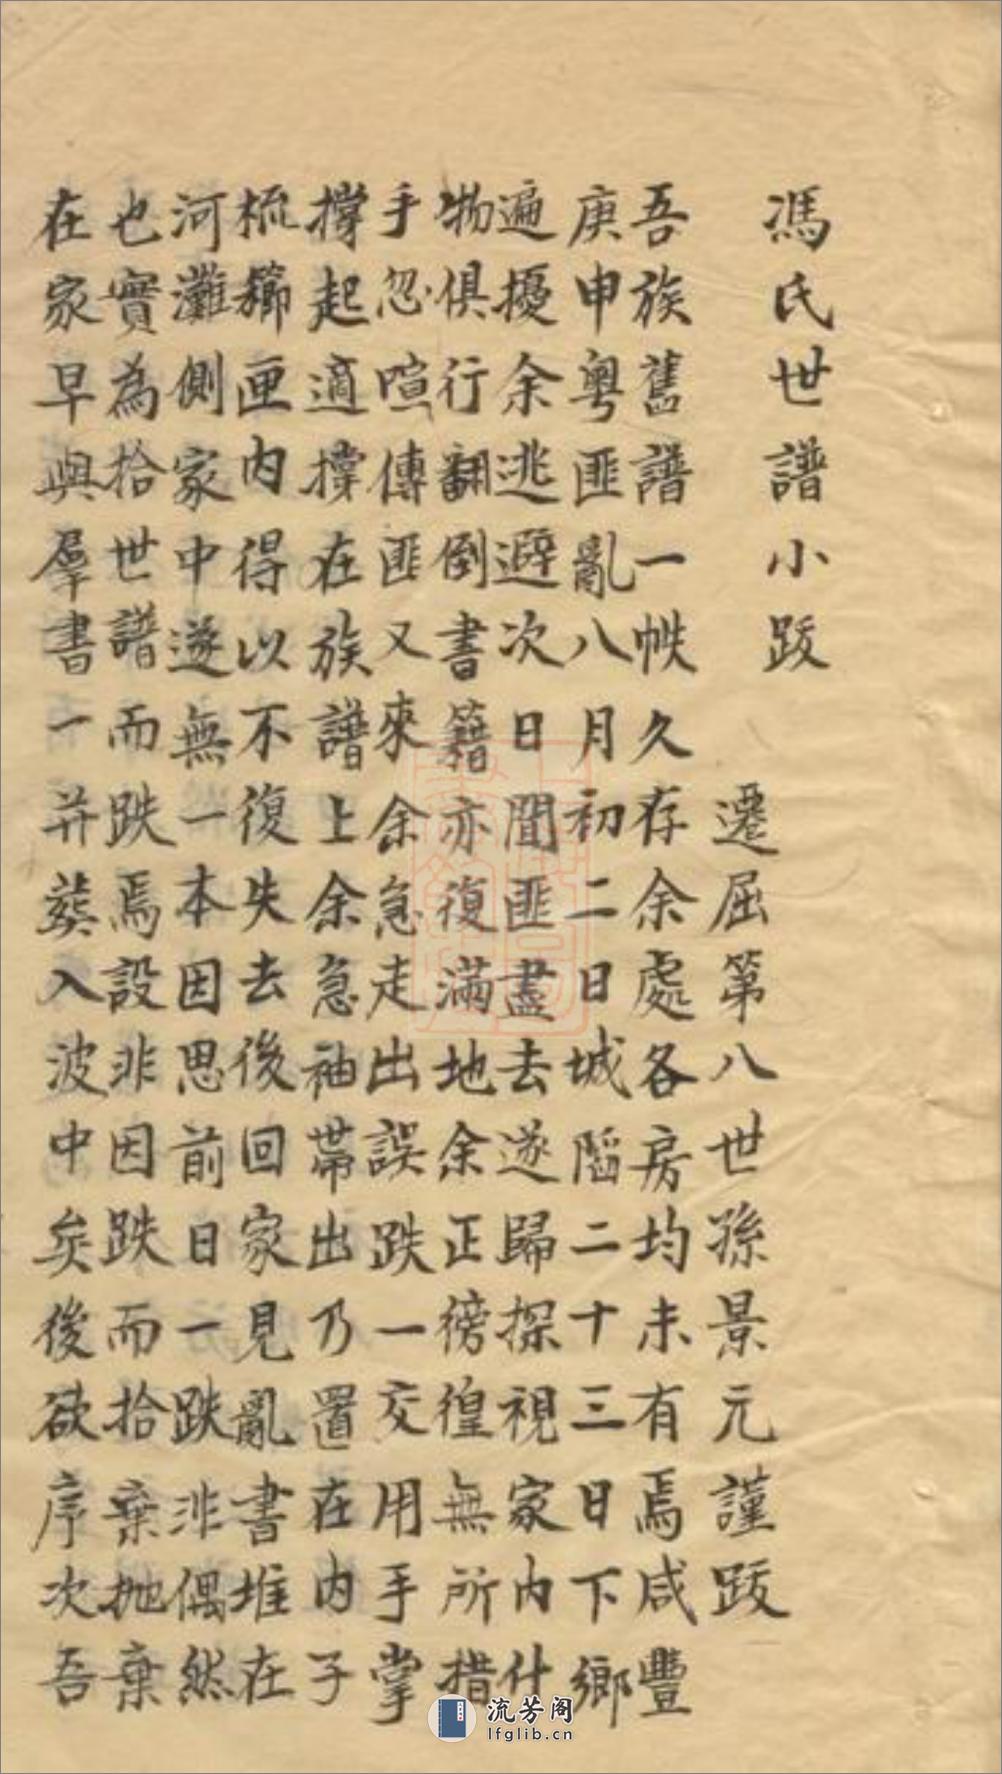 馮氏世譜小跋
遷屈第八世孫景元謹跋
吾族舊譜一帙久存余處各房均未有焉咸豐
庚申粵匪亂八月初二日城陷二十三日下鄉
遍擾余逃避次日聞匪盡去遂歸探視家內什
物俱行翻倒書籍亦復滿地余正徬徨無所措
手忽喧傳匪又來余急走出誤跌一交用手掌
撐起適撐在族譜上余急袖帶出乃置在內子
梳櫛匣內得以不復失去後回家見亂書堆在
河灘側家中遂無一本因思前日一跌非偶然
也實為拾世譜而跌焉設非因跌而拾棄拋棄
在家早與羣書一并葬入波中矣後欲序次吾
流芳阁
lfglib.cn